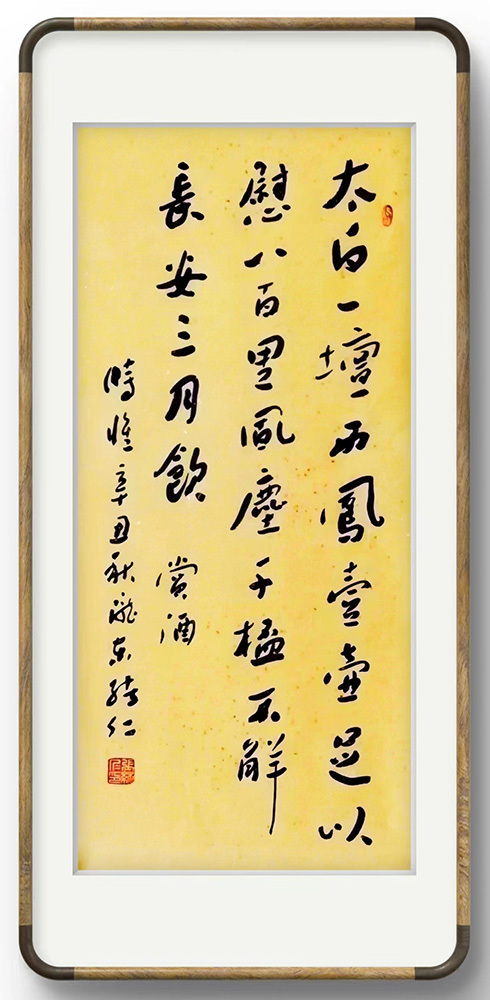 太白一壇西鳳壹壺足以
慰八百里風塵千榼不解
長安三月飲 賞酒
時惟辛丑秋隴東緒仁